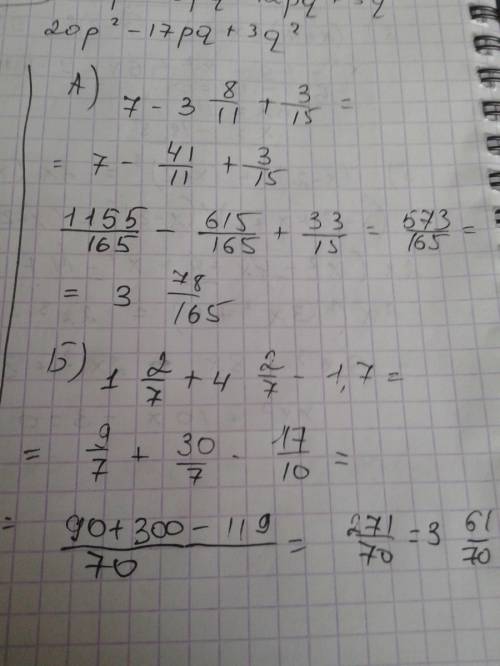 20p² - 17pq + 3q²
А) 7 - 3 8/11 + 3/15 =
= 7 - 41/11 + 3/15
1155/165 - 615/165 + 33/15 = 573/165 =
= 3 78/165
Б) 1 2/7 + 4 2/7 - 1,7 =
= 9/7 + 30/7 - 17/10 =
= (90+300-119)/70 = 271/70 = 3 61/70